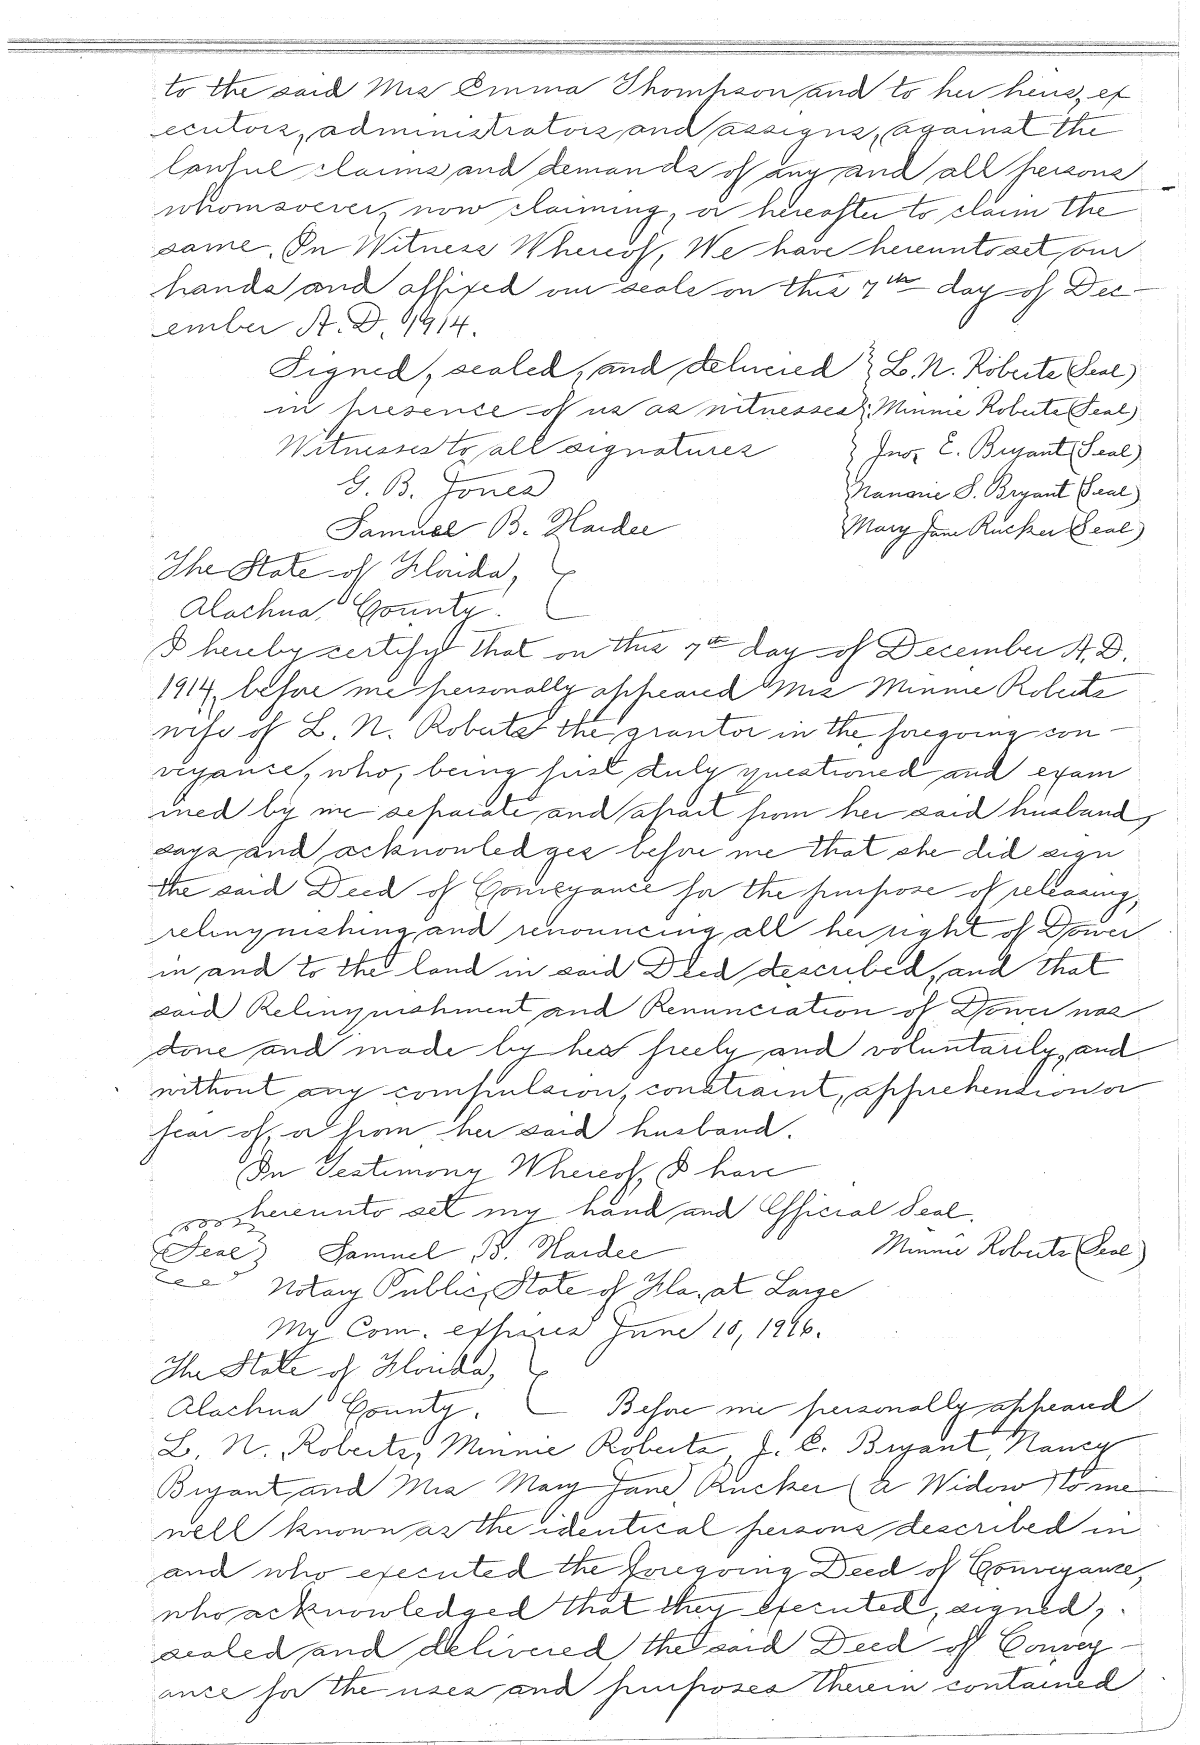 to the said Mrs Emma Thompson and to her heirs, ex
ecutors, administrators and assigns, against the
lawful claims and demands of any and all persons
whomsoever, now claiming, or hereafter to claim the
same. In Witness Whereof, We have hereunto set our
hands and affixed our seals on this 7th day of Dec-
ember A. D. 1914.
Signed, sealed, and delivered } L. N. Roberts (Seal)
in presence of us as witnesses } Minnie Roberts (Seal)
Witnesses to all signatures } Jno. E. Bryant (Seal)
G. B. Jones } Nannie S. Bryant (Seal)
Samuel B. Hardee } Mary Jane Rucker (Seal)
The State of Florida, }
Alachua County. {
I hereby certify that on this 7th day of December A. D.
1914, before me personally appeared Mrs Minnie Roberts
wife of L. N. Roberts the grantor in the foregoing con-
veyance, who, being first duly questioned and exam
ined by me separate and apart from her said husband,
says and acknowledges before me that she did sign
the said Deed of Conveyance for the purpose of releasing,
relinquishing and renouncing all her right of Dower
in and to the land in said Deed described, and that
said Relinquishment and Renunciation of Dower was
done and made by her freely and voluntarily, and
without any compulsion, constraint, apprehension or
fear of, or from her said husband.
In Testimony Whereof, I have
hereunto set my hand and Official Seal.
(Seal) Samuel B. Hardee Minnie Roberts (Seal)
Notary Public, State of Fla. at Large
My Com. expires June 10, 1916.
The State of Florida, }
Alachua County. { Before me personally appeared
L. N. Roberts, Minnie Roberts, J. E. Bryant, Nancy
Bryant and Mrs Mary Jane Rucker (a Widow) to me
well known as the identical persons described in
and who executed the foregoing Deed of Conveyance,
who acknowledged that they executed, signed,
sealed and delivered the said Deed of Convey-
ance for the uses and purposes therein contained